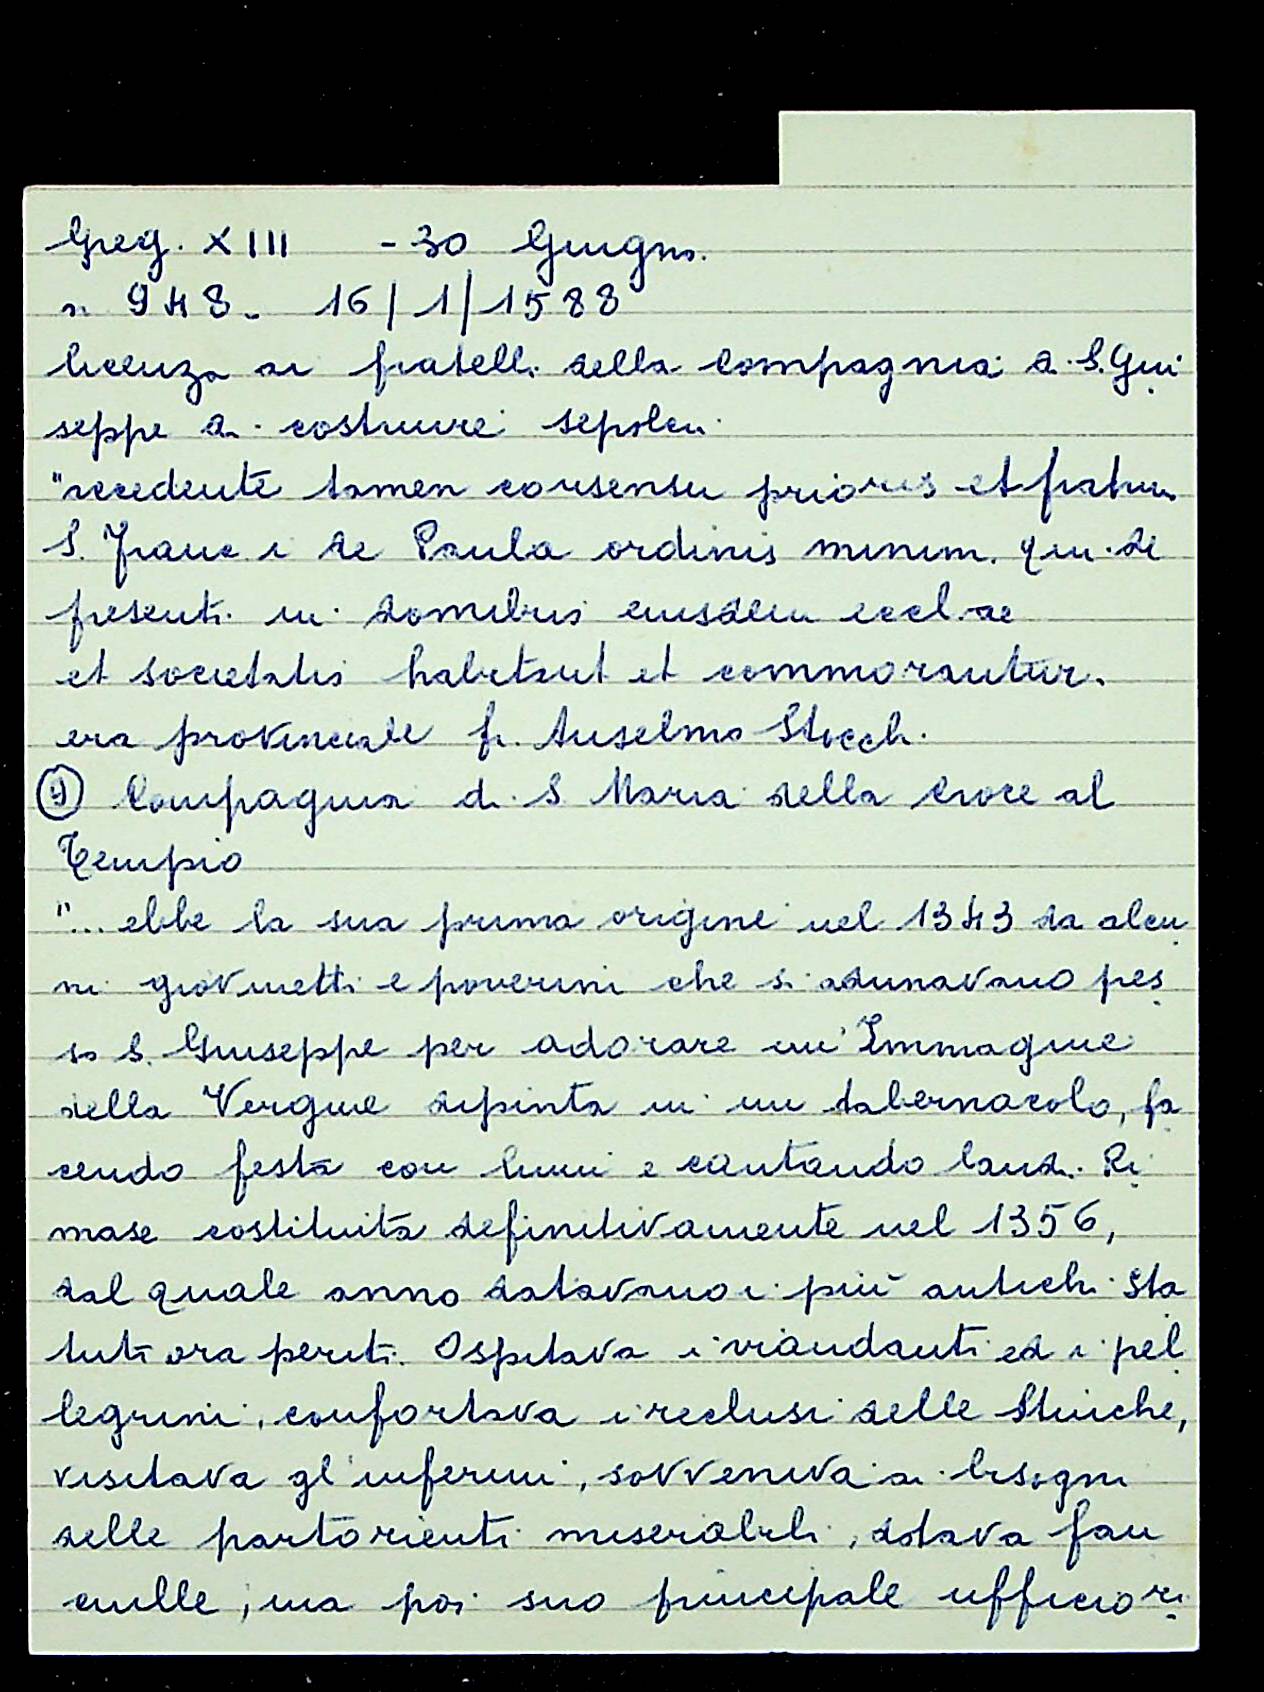 Greg. XIII - 30 Giugno.
n. 948. 16/1/1588
licenza ai fratelli della Compagnia di S. Giu
seppe di costruire sepolcri
"accedente tamen consensu prioris et fratrum
S. Franc.i de Paula ordinis minim. qui de
presenti in domibus eiusdem eccl.ae
et societatis habitant et commorantur.
era provinciale fr. Anselmo Stocchi.
9) Compagnia di S Maria della Croce al
Tempio
"... ebbe la sua prima origine nel 1343 da alcu
ni giovinetti e poverini che si adunavano pres
so S. Giuseppe per adorare un'Immagine
della Vergine dipinta in un tabernacolo, fa
cendo festa con lumi e cantando laudi. Ri
mase costituita definitivamente nel 1356,
dal quale anno datavano i più antichi Sta
tuti ora periti. Ospitava i viandanti ed i pel
legrini, confortava i reclusi delle Stinche,
visitava gl'infermi, sovveniva ai bisogni
delle partorienti miserabili, dotava fan
ciulle, ma poi suo principale ufficio ri